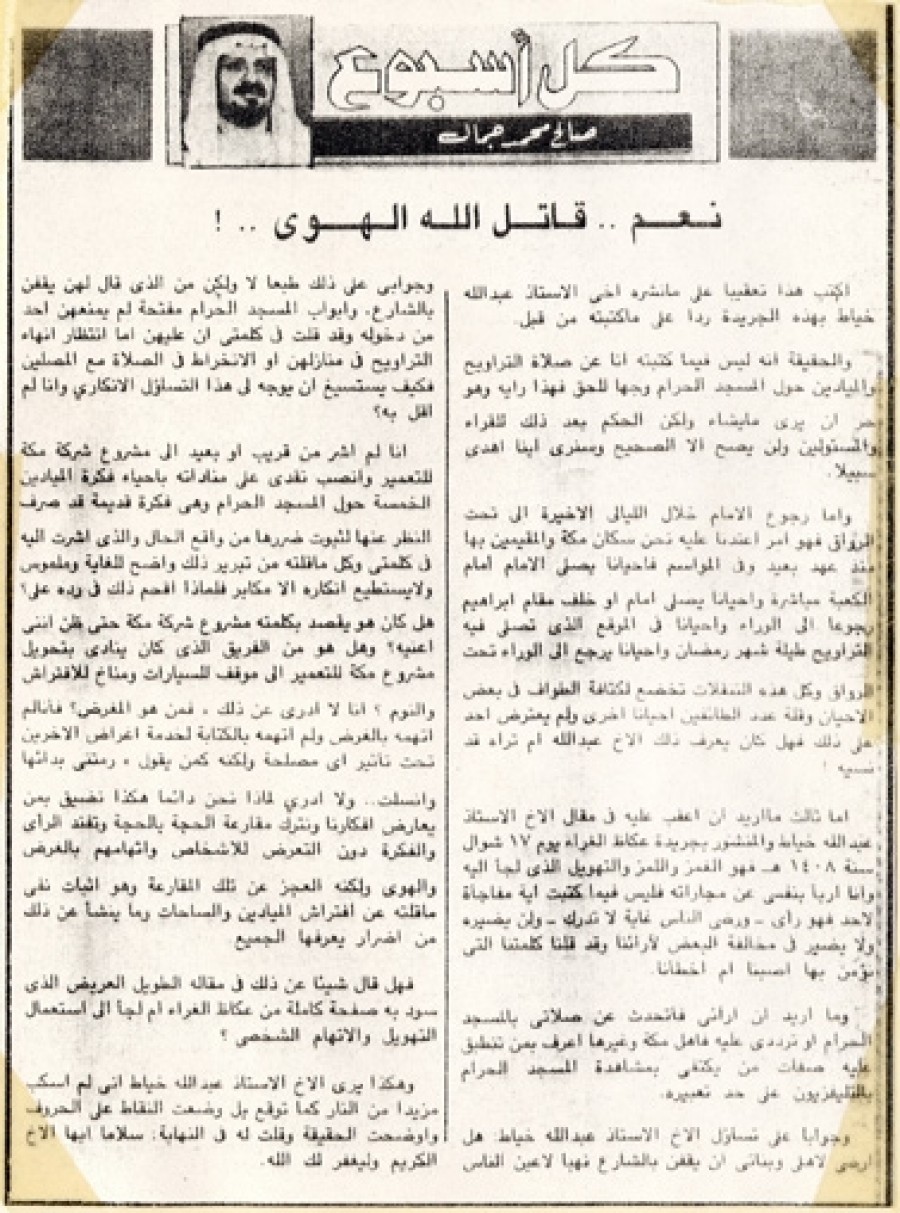 كل أسبوع
صالح محمد جمال
نعم .. قاتل الله الهوى .. !
اكتب هذا تعقيبا على مانشره اخى الاستاذ عبدالله
خياط بهذه الجريدة ردا على ماكتبته من قبل.
والحقيقة انه ليس فيما كتبته انا عن صلاة التراويح
والميادين حول المسجد الحرام وجها للحق فهذا رايه وهو
حر ان يرى مايشاء ولكن الحكم بعد ذلك للقراء
والمسئولين ولن يصح الا الصحيح وسنرى اينا اهدى
سبيلا.
واما رجوع الامام خلال الليالى الاخيرة الى تحت
الرواق فهو امر اعتدنا عليه نحن سكان مكة والمقيمين بها
منذ عهد بعيد وفى المواسم فاحيانا يصلى الامام امام
الكعبة مباشرة واحيانا يصلى امام او خلف مقام ابراهيم
رجوعا الى الوراء واحيانا فى الموقع الذى تصلى فيه
التراويح طيلة شهر رمضان واحيانا يرجع الى الوراء تحت
الرواق وكل هذه التنقلات تخضع لكثافة الطواف فى بعض
الاحيان وقلة عدد الطائفين احيانا اخرى ولم يعترض احد
على ذلك فهل كان يعرف ذلك الاخ عبدالله ام تراه قد
نسيه !
اما ثالث مااريد ان اعقب عليه فى مقال الاخ الاستاذ
عبدالله خياط والمنشور بجريدة عكاظ الغراء يوم ١٧ شوال
سنة ١٤٠٨ هـ فهو الغمز واللمز والتهويل الذى لجا اليه
وانا اربا بنفسى عن مجاراته فليس فيما كتبت اية مفاجاة
لاحد فهو رأى ـ ورضى الناس غاية لا تدرك ـ ولن يضيره
ولا يضير فى مخالفة البعض لآرائنا وقد قلنا كلمتنا التى
نؤمن بها اصبنا ام اخطانا.
وما اريد ان ارانى فاتحدث عن صلاتى بالمسجد
الحرام او ترددى عليه فاهل مكة وغيرها اعرف بمن تنطبق
عليه صفات من يكتفى بمشاهدة المسجد الحرام
بالتليفزيون على حد تعبيره.
وجوابا على تساؤل الاخ الاستاذ عبدالله خياط: هل
ارضى لاهلى وبناتى ان يقفن بالشارع نهبا لاعين الناس
وجوابى على ذلك طبعا لا ولكن من الذى قال لهن يقفن
بالشارع، وابواب المسجد الحرام مفتحة لم يمنعهن احد
من دخوله وقد قلت فى كلمتى ان عليهن اما انتظار انهاء
التراويح فى منازلهن او الانخراط فى الصلاة مع المصلين
فكيف يستسيغ ان يوجه لى هذا التساؤل الانكاري وانا لم
اقل به؟
انا لم اشر من قريب او بعيد الى مشروع شركة مكة
للتعمير وانصب نقدى على مناداته باحياء فكرة الميادين
الخمسة حول المسجد الحرام وهى فكرة قديمة قد صرف
النظر عنها لثبوت ضررها من واقع الحال والذى اشرت اليه
فى كلمتى وكل ماقلته من تبرير ذلك واضح للغاية وملموس
ولايستطيع انكاره الا مكابر فلماذا اقحم ذلك فى رده على؟
هل كان هو يقصد بكلمته مشروع شركة مكة حتى ظن اننى
اعنيه؟ وهل هو من الفريق الذى كان ينادى بتحويل
مشروع مكة للتعمير الى موقف للسيارات ومناخ للافتراش
والنوم ؟ انا لا ادرى عن ذلك ، فمن هو المغرض؟ فأنالم
اتهمه بالغرض ولم اتهمه بالكتابة لخدمة اغراض الاخرين
تحت تأثير اى مصلحة ولكنه كمن يقول ، رمتنى بدائها
وانسلت.. ولا ادري لماذا نحن دائما هكذا نضيق بمن
يعارض افكارنا ونترك مقارعة الحجة بالحجة وتفند الرأى
والفكرة دون التعرض للاشخاص واتهامهم بالغرض
والهوى ولكنه العجز عن تلك المقارعة وهو اثبات نفى
ماقلته عن افتراش الميادين والساحات وما ينشأ عن ذلك
من اضرار يعرفها الجميع.
فهل قال شيئا عن ذلك فى مقاله الطويل العريض الذى
سود به صفحة كاملة من عكاظ الغراء ام لجأ الى استعمال
التهويل والاتهام الشخصى ؟
وهكذا يرى الاخ الاستاذ عبدالله خياط انى لم اسكب
مزيدا من النار كما توقع بل وضعت النقاط على الحروف
واوضحت الحقيقة وقلت له فى النهاية: سلاما ايها الاخ
الكريم وليغفر لك الله.